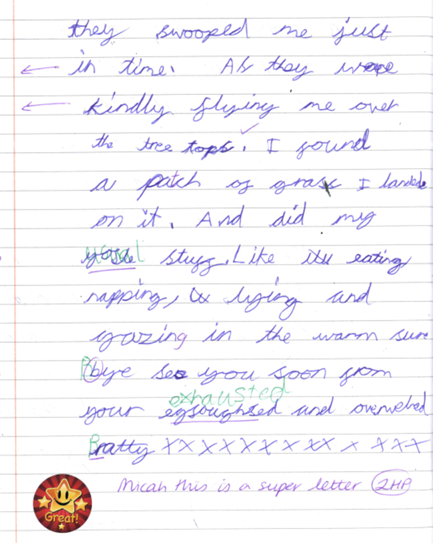 they swooped me just
in time. As they were
kindly flying me over
the tree tops. I found
a patch of grass I landed
on it. And did my
usual stuff. Like eating,
napping, lying and
gazing in the warm sun
Bye see you soon from
exhausted
your eqsoughsed and overwelmed
Bratty xxxxxxxxx x xxx
Micah this is a super letter 2HP
Great!